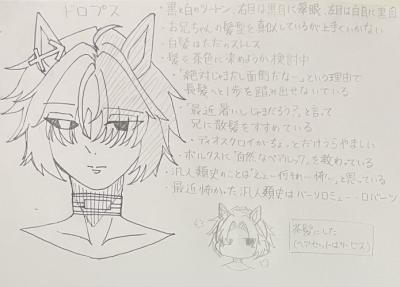 ドロプス
・黒と白のツートン、右目は黒目に築眼、左目は白目に黒目
・お兄ちゃんの髪型を真似しているが上手くいかない
・白髪はただのストレス
・髪を茶色に染めようか検討中
・「絶対じゃまだし面倒だな…」という理由で
長髪へと1歩を踏み出せないでいる
・「最近暑いしじゃまだろう?」と言って
兄に散髪をすすめている
・ディオスクロイがちょっとだけうらやましい
・ポルクスに"自然なペアルック"を教わっている
・汎人類史のことは「えっ…何それ…怖…」と思っている
・最近怖かった汎人類史はバーソロミュー・ロバーツ
茶髪にした
(ヘアセットはサービス)